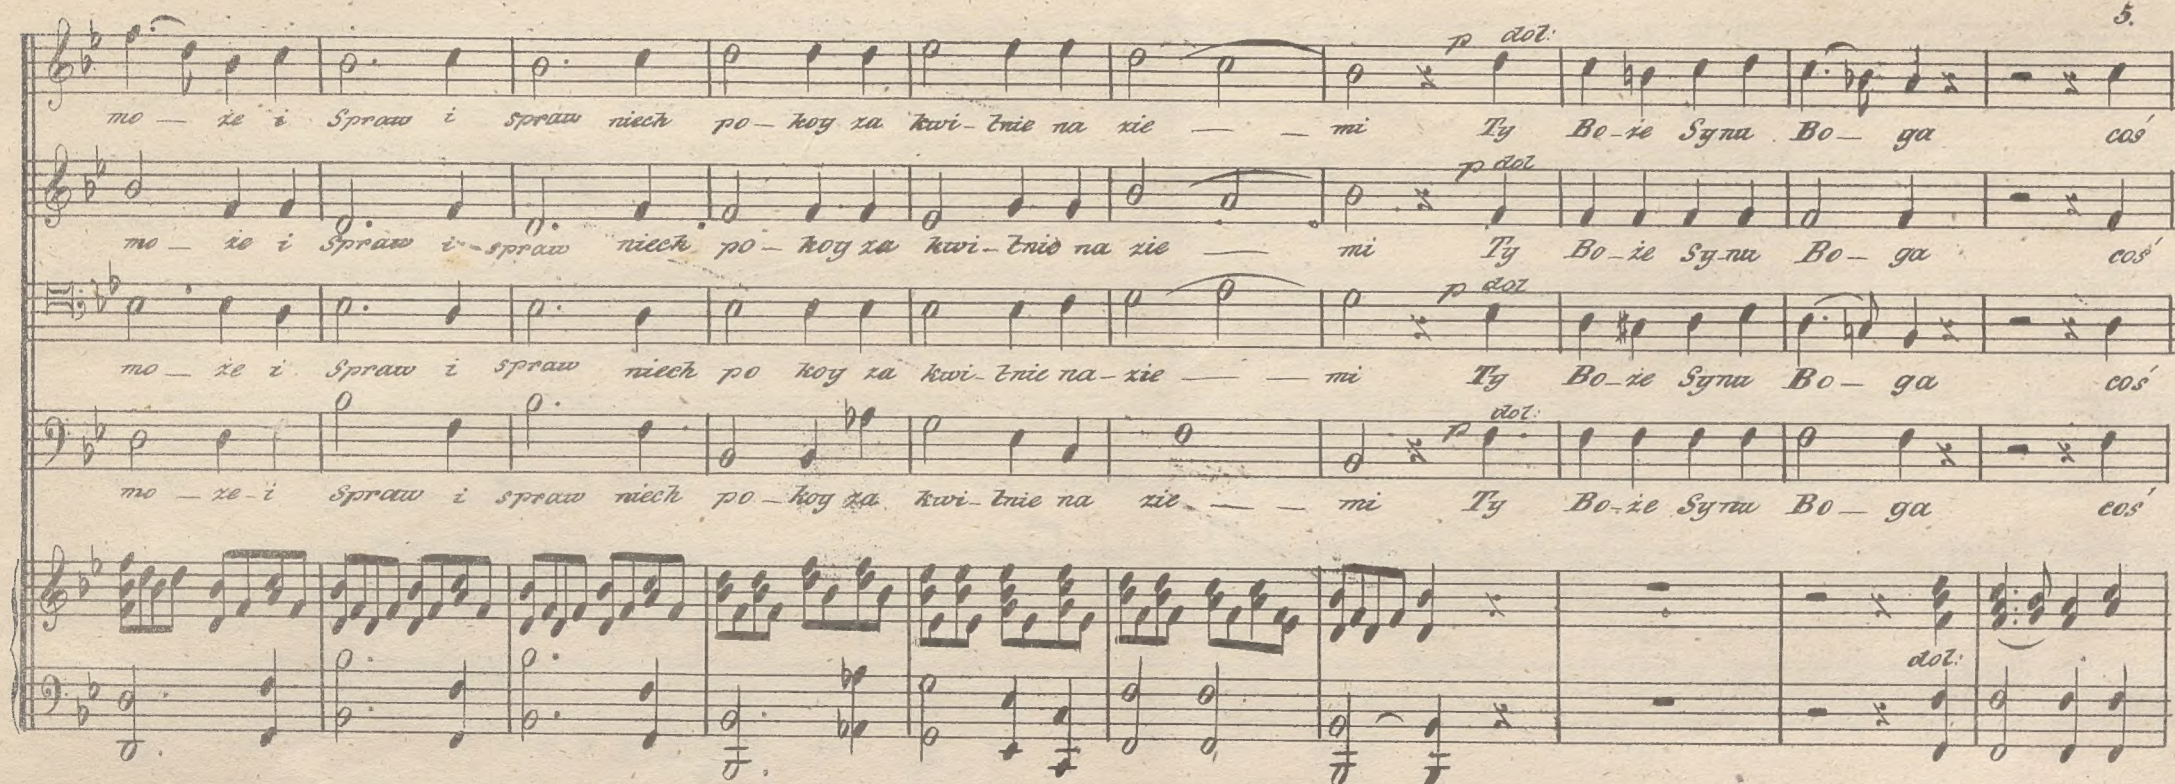 5.
p dol:
mo — że i Spraw i spraw niech po — koy za kwi — tnie na zie — — — mi Ty Bo — że Synu Bo — ga coś
p dol
mo — że i Spraw i — spraw niech po — koy za kwi — tnie na zie — mi Ty Bo — że Sy — nu Bo — ga coś
p dol
mo — że i Spraw i spraw niech po koy za kwi — tnie na — zie — — mi Ty Bo — że Synu Bo — ga coś
p dol:
mo — że — i Spraw i spraw niech po — koy za kwi — tnie na zie — — — mi Ty Bo — że Synu Bo — ga coś
dol: